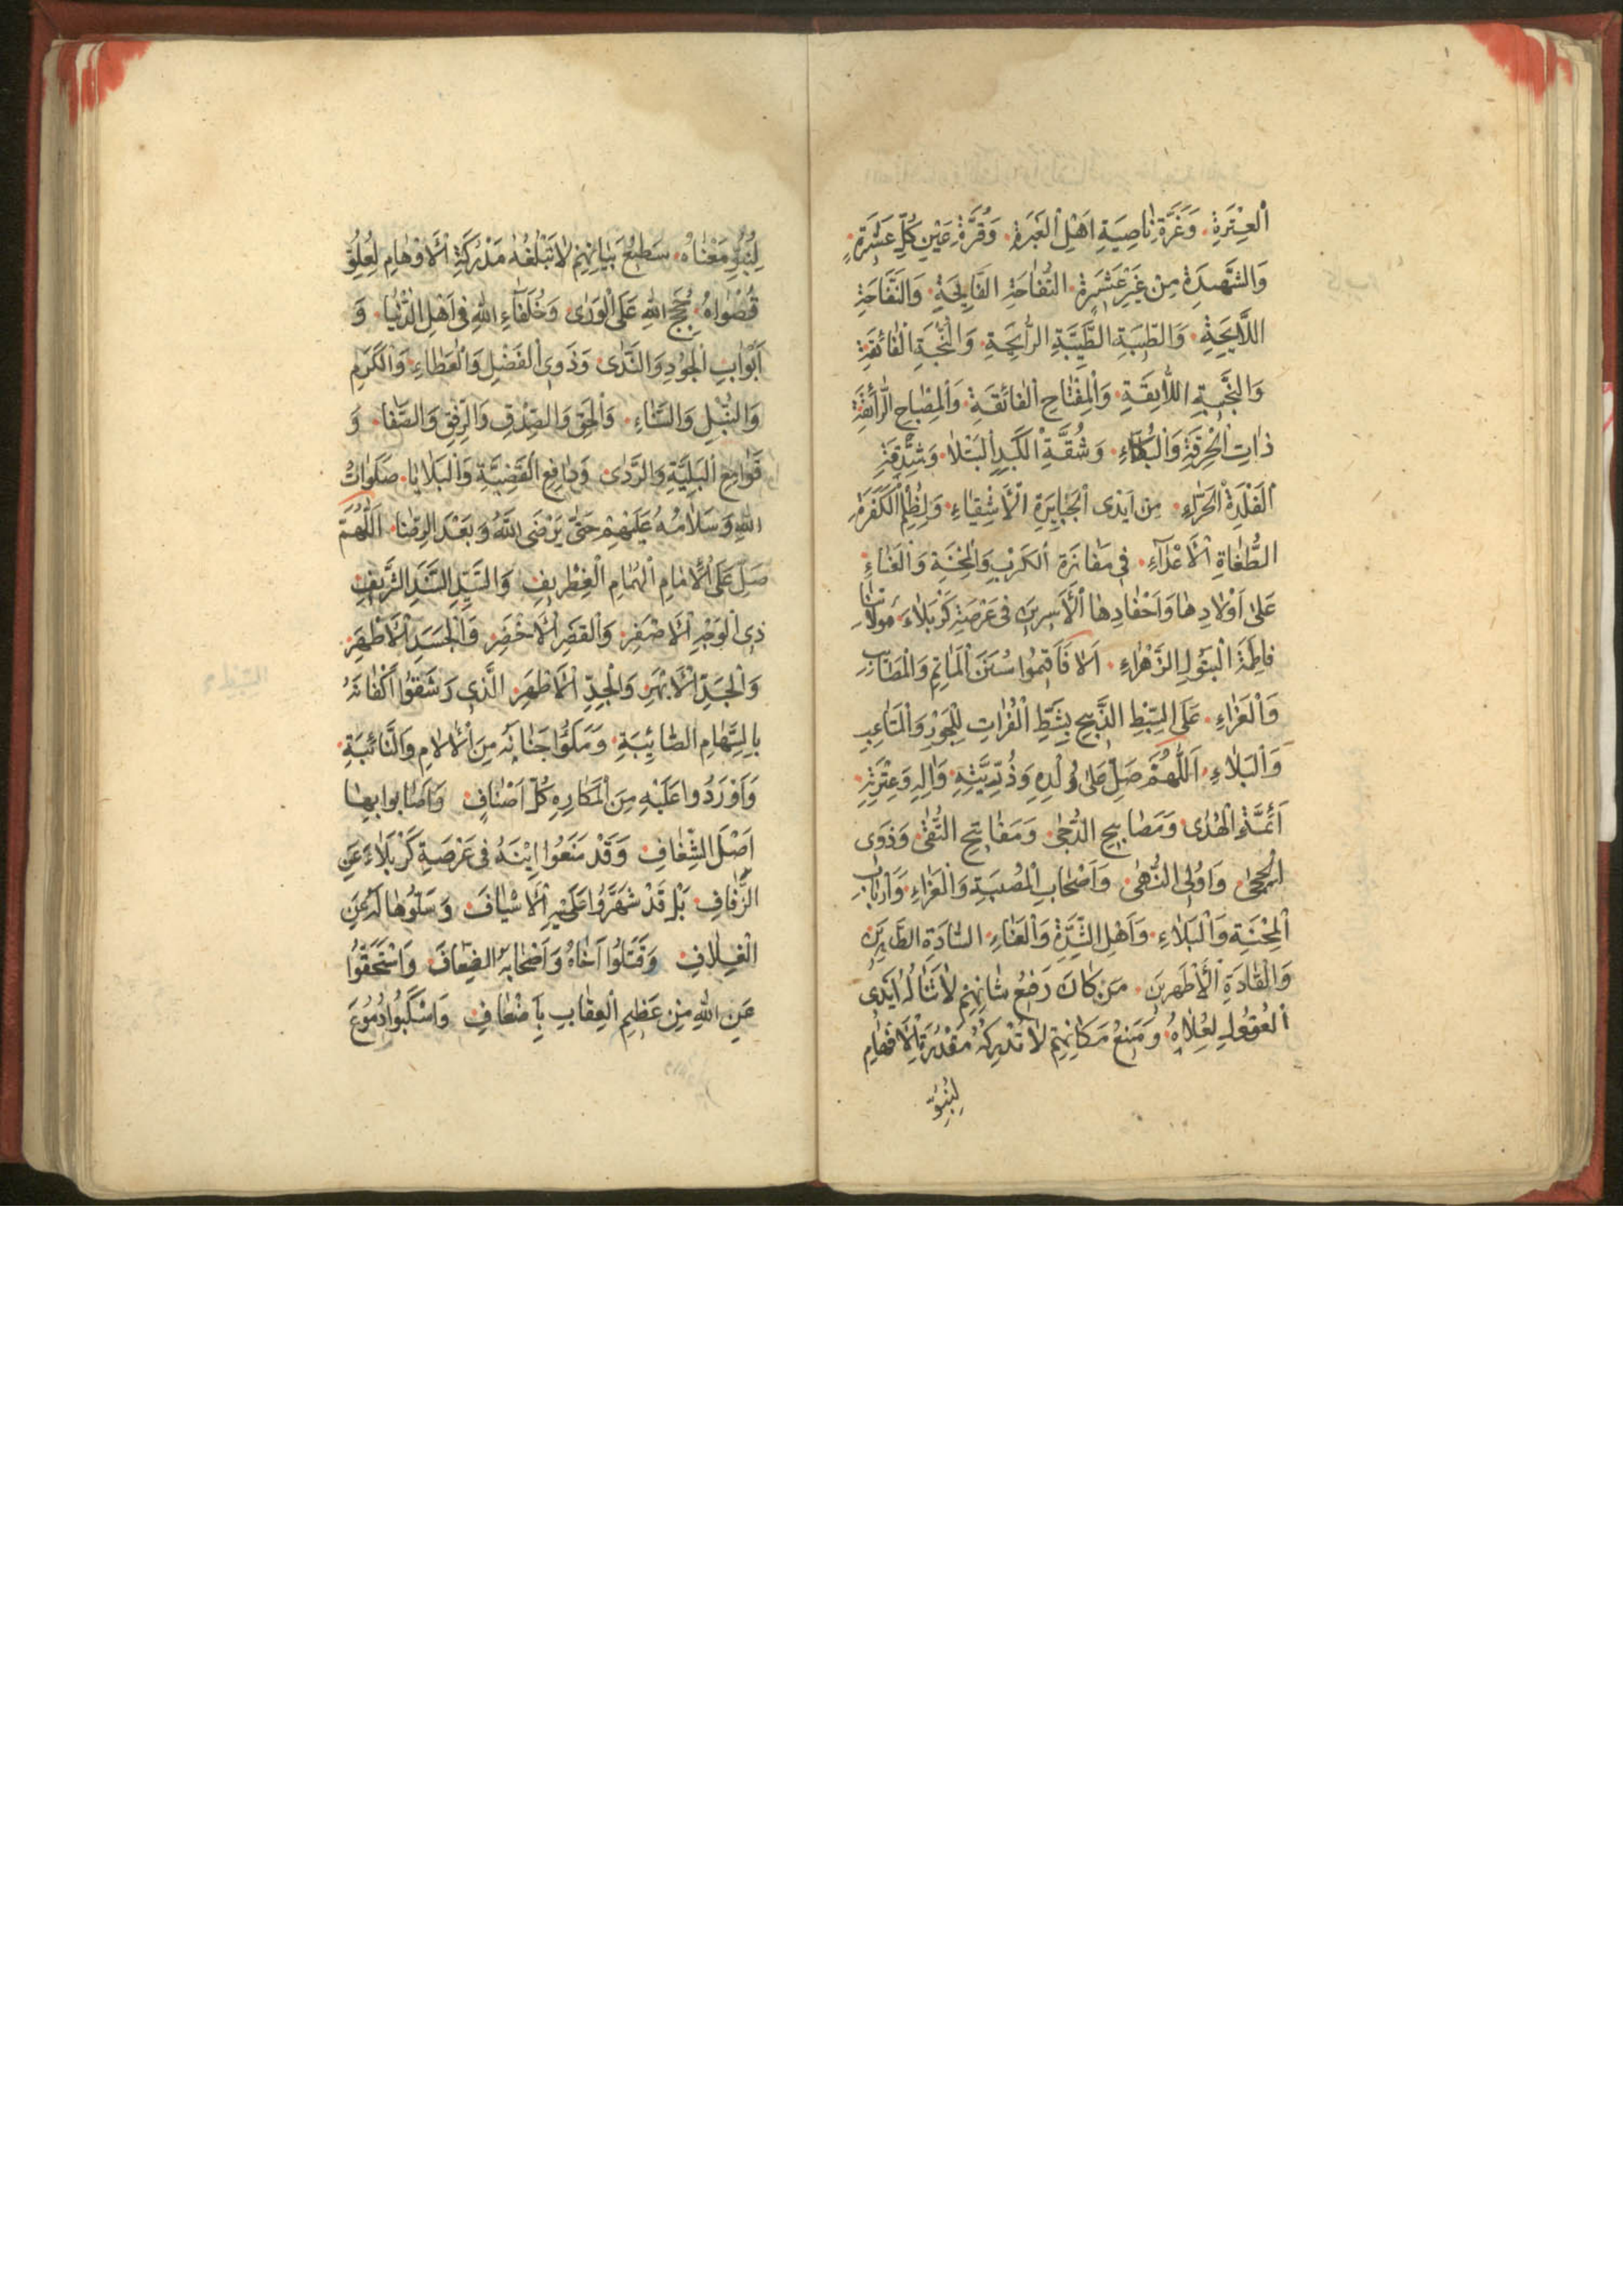 اَلْعِتْرَةِ، وَغُرَّةِ نٰاصِيَةِ اَهْلِ الْعَبْرَةِ، وَقُرَّةِ عَيْنِ كُلِّ عَشِيْرَةٍ
وَالشَّهِيدَةِ مِنْ غَيْرِ عَشِيرَةٍ، التُّفّٰاحَةِ الْفٰايِحَةِ، وَالنَّفّٰاحَةِ
اللّٰايِحَةِ، وَالطَّيِّبَةِ الرّٰايِحَةِ، الْفٰائِقَةِ
وَالنَّجِيبَةِ اللّٰايِقَةِ، وَالْمِفْتٰاحِ الْفٰائِقَةِ، وَالْمِصْبٰاحِ الرّٰائِقَةِ
ذٰاتِ الْحُرْقَةِ وَالْبُكٰاءِ، وَشُقَّةِ الْكَبِدِ
الْفَلْذَةِ الْحَرّٰاءِ، مِنْ اَيْدِى الْجَبٰابِرَةِ الْاَشْقِيٰاءِ، وَلِظُلْمِ الْكَفَرَةِ
الطُّغٰاةِ الْاَعْدٰآءِ، فِى مَفٰازَةِ الْكَرْبِ وَالْمِحْنَةِ وَالْعَنٰاءِ
عَلٰى اَوْلٰادِهٰا وَاَحْفٰادِهٰا الْاَسِرِينَ فِى عَرْصَةِ كَرْبَلٰاءَ، مَوْلٰاتِنٰا
فٰاطِمَةَ الْبَتُولِ الزَّهْرٰاءِ، اَلٰا فَاَقِيمُوا سُنَنَ الْمَاٰتِمِ وَالْمَصٰايِبِ
وَالْعَزٰاءِ، عَلَى السِّبْطِ الذَّبِيحِ بِشَطِّ الْفُرٰاتِ لِلْجَوْرِ وَالْمَتٰاعِبِ
وَالْبَلٰاءِ، اَللّٰهُمَّ صَلِّ عَلٰى وُلْدِهِ وَذُرِّيَّتِهِ، وَاٰلِهِ وَعِتْرَتِهِ
اَئِمَّةِ الْهُدٰى وَمَصٰابِيحِ الدُّجٰى، وَمَفٰاتِيحِ التُّقٰى، وَذَوِى
الْحِجٰى، وَاُولِى النُّهٰى، وَاَصْحٰابِ الْمُصِيبَةِ وَالْعَزٰاءِ، وَاَرْبٰابِ
الْمِحْنَةِ وَالْبَلٰاءِ، وَاَهْلِ الشِّدَّةِ وَالْعَنٰاءِ، السّٰادَةِ الطّٰاهِرِينَ
وَالْقٰادَةِ الْاَطْهَرِينَ، مَنْ كٰانَ رَفِيعُ شٰانِهِمْ لٰا تَنٰالُهُ اَيْدِى
الْعُقُولِ لِعُلٰاهُ، وَمَنِيعُ مَكٰانِهِمْ لٰا تُدْرِكُهُ مَقْدُرَةُ الْاَفْهٰامِ
لِنُبُوِّ
لِنُبُوِّ مَعْنٰاهُ، سَطِيعُ بَيٰانِهِمْ لٰا تَبْلُغُهُ مَدْرَكَةُ الْاَوْهٰامِ لِعُلُوِّ
قُصْوٰاهُ، حُجَجِ اللهِ عَلَى الْوَرٰى، وَخُلَفٰآءِ اللهِ فِى اَهْلِ الدُّنْيٰا، وَ
اَبْوٰابِ الْجُودِ وَالنَّدٰى، وَذَوِى الْفَضْلِ وَالْعَطٰاءِ، وَالْكَرَمِ
وَالنُّبْلِ وَالسَّنٰاءِ، وَالْحَقِّ وَالصِّدْقِ وَالرِّفْقِ وَالصَّفٰا، وَ
قَوٰامِعِ الْبَلِيَّةِ وَالرَّدٰى، وَدٰافِعِ الْقَضِيَّةِ وَالْبَلٰايٰا، صَلَوٰاتُ
اللهِ وَسَلٰامُهُ عَلَيْهِمْ حَتّٰى يَرْضَى اللهُ وَبَعْدَ الرِّضٰا، اَللّٰهُمَّ
صَلِّ عَلَى الْاِمٰامِ الْهُمٰامِ الْغِطْرِيفِ، وَالسَّيِّدِ السَّنَدِ الشَّرِيفِ
ذِى الْوَجْهِ الْاَصْفَرِ، وَالْقَصْرِ الْاَخْضَرِ، وَالْجَسَدِ الْاَطْهَرِ
وَالْجَدِّ الْاَبْهَرِ، وَالْجِدِّ الْاَظْهَرِ، الَّذِى رَشَقُوا اَكْفٰانَهُ
بِالسِّهٰامِ الصّٰائِبَةِ، وَمَلَؤُا جَنٰانَهُ مِنَ الْاٰلٰامِ وَالنّٰائِبَةِ
وَاَوْرَدُوا عَلَيْهِ مِنَ الْمَكٰارِهِ كُلَّ اَصْنٰافٍ، وَاَصٰابُوا بِهٰا
اَصْلَ الشِّغٰافِ، وَقَدْ مَنَعُوا اِبْنَهُ فِى عَرْصَةِ كَرْبَلٰاءَ عَنِ
الزِّفٰافِ، بَلْ قَدْ شَهَّرُوا عَلَيْهِ الْاَسْيٰافَ، وَسَلُّوهٰا لَهُ عَنِ
الْغِلٰافِ، وَقَتَلُوا اَخٰاهُ وَاَصْحٰابَهُ الضِّعٰافَ، وَاسْتَحَقُّوا
عَنِ اللهِ مِنْ عَظِيمِ الْعِقٰابِ بِاَضْعٰافٍ، وَاسْكَبُوا دُمُوعَ